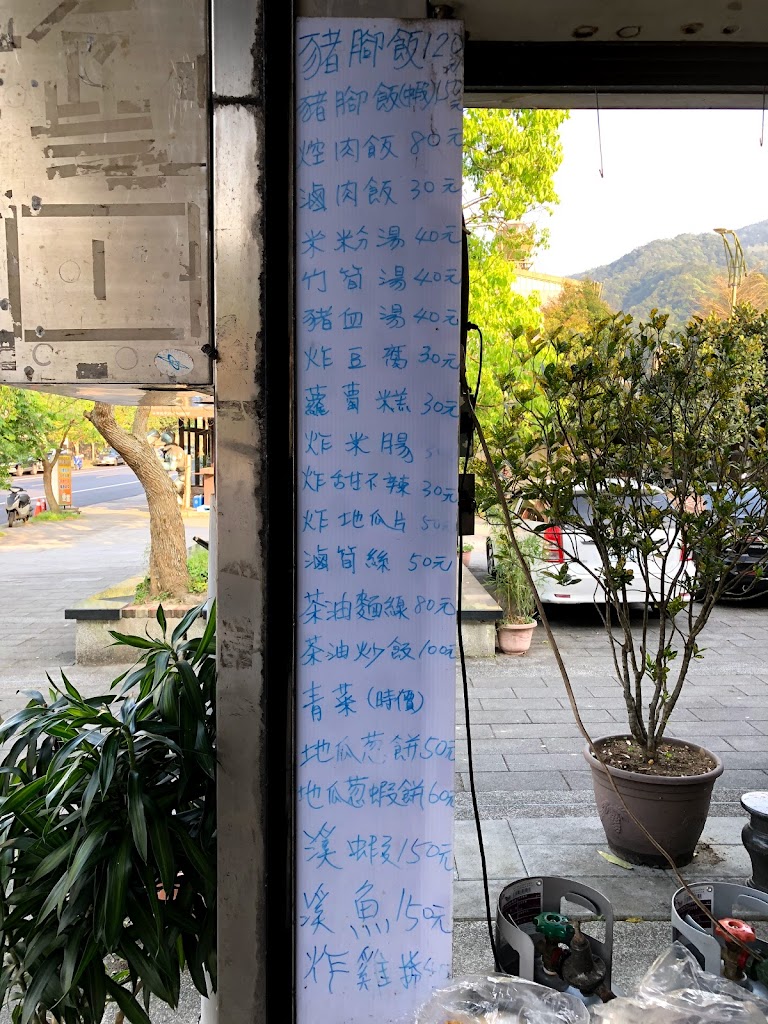 豬腳飯120
豬腳飯(蝦)150
焢肉飯 80元
滷肉飯 30元
米粉湯 40元
竹筍湯 40元
豬血湯 40元
炸豆腐 30元
蘿蔔糕 30元
炸米腸
炸甜不辣 30元
炸地瓜片 50元
滷筍絲 50元
茶油麵線 80元
茶油炒飯 100元
青菜(時價)
地瓜蔥餅50元
地瓜蔥蝦餅60元
溪蝦150元
溪魚150元
炸雞捲